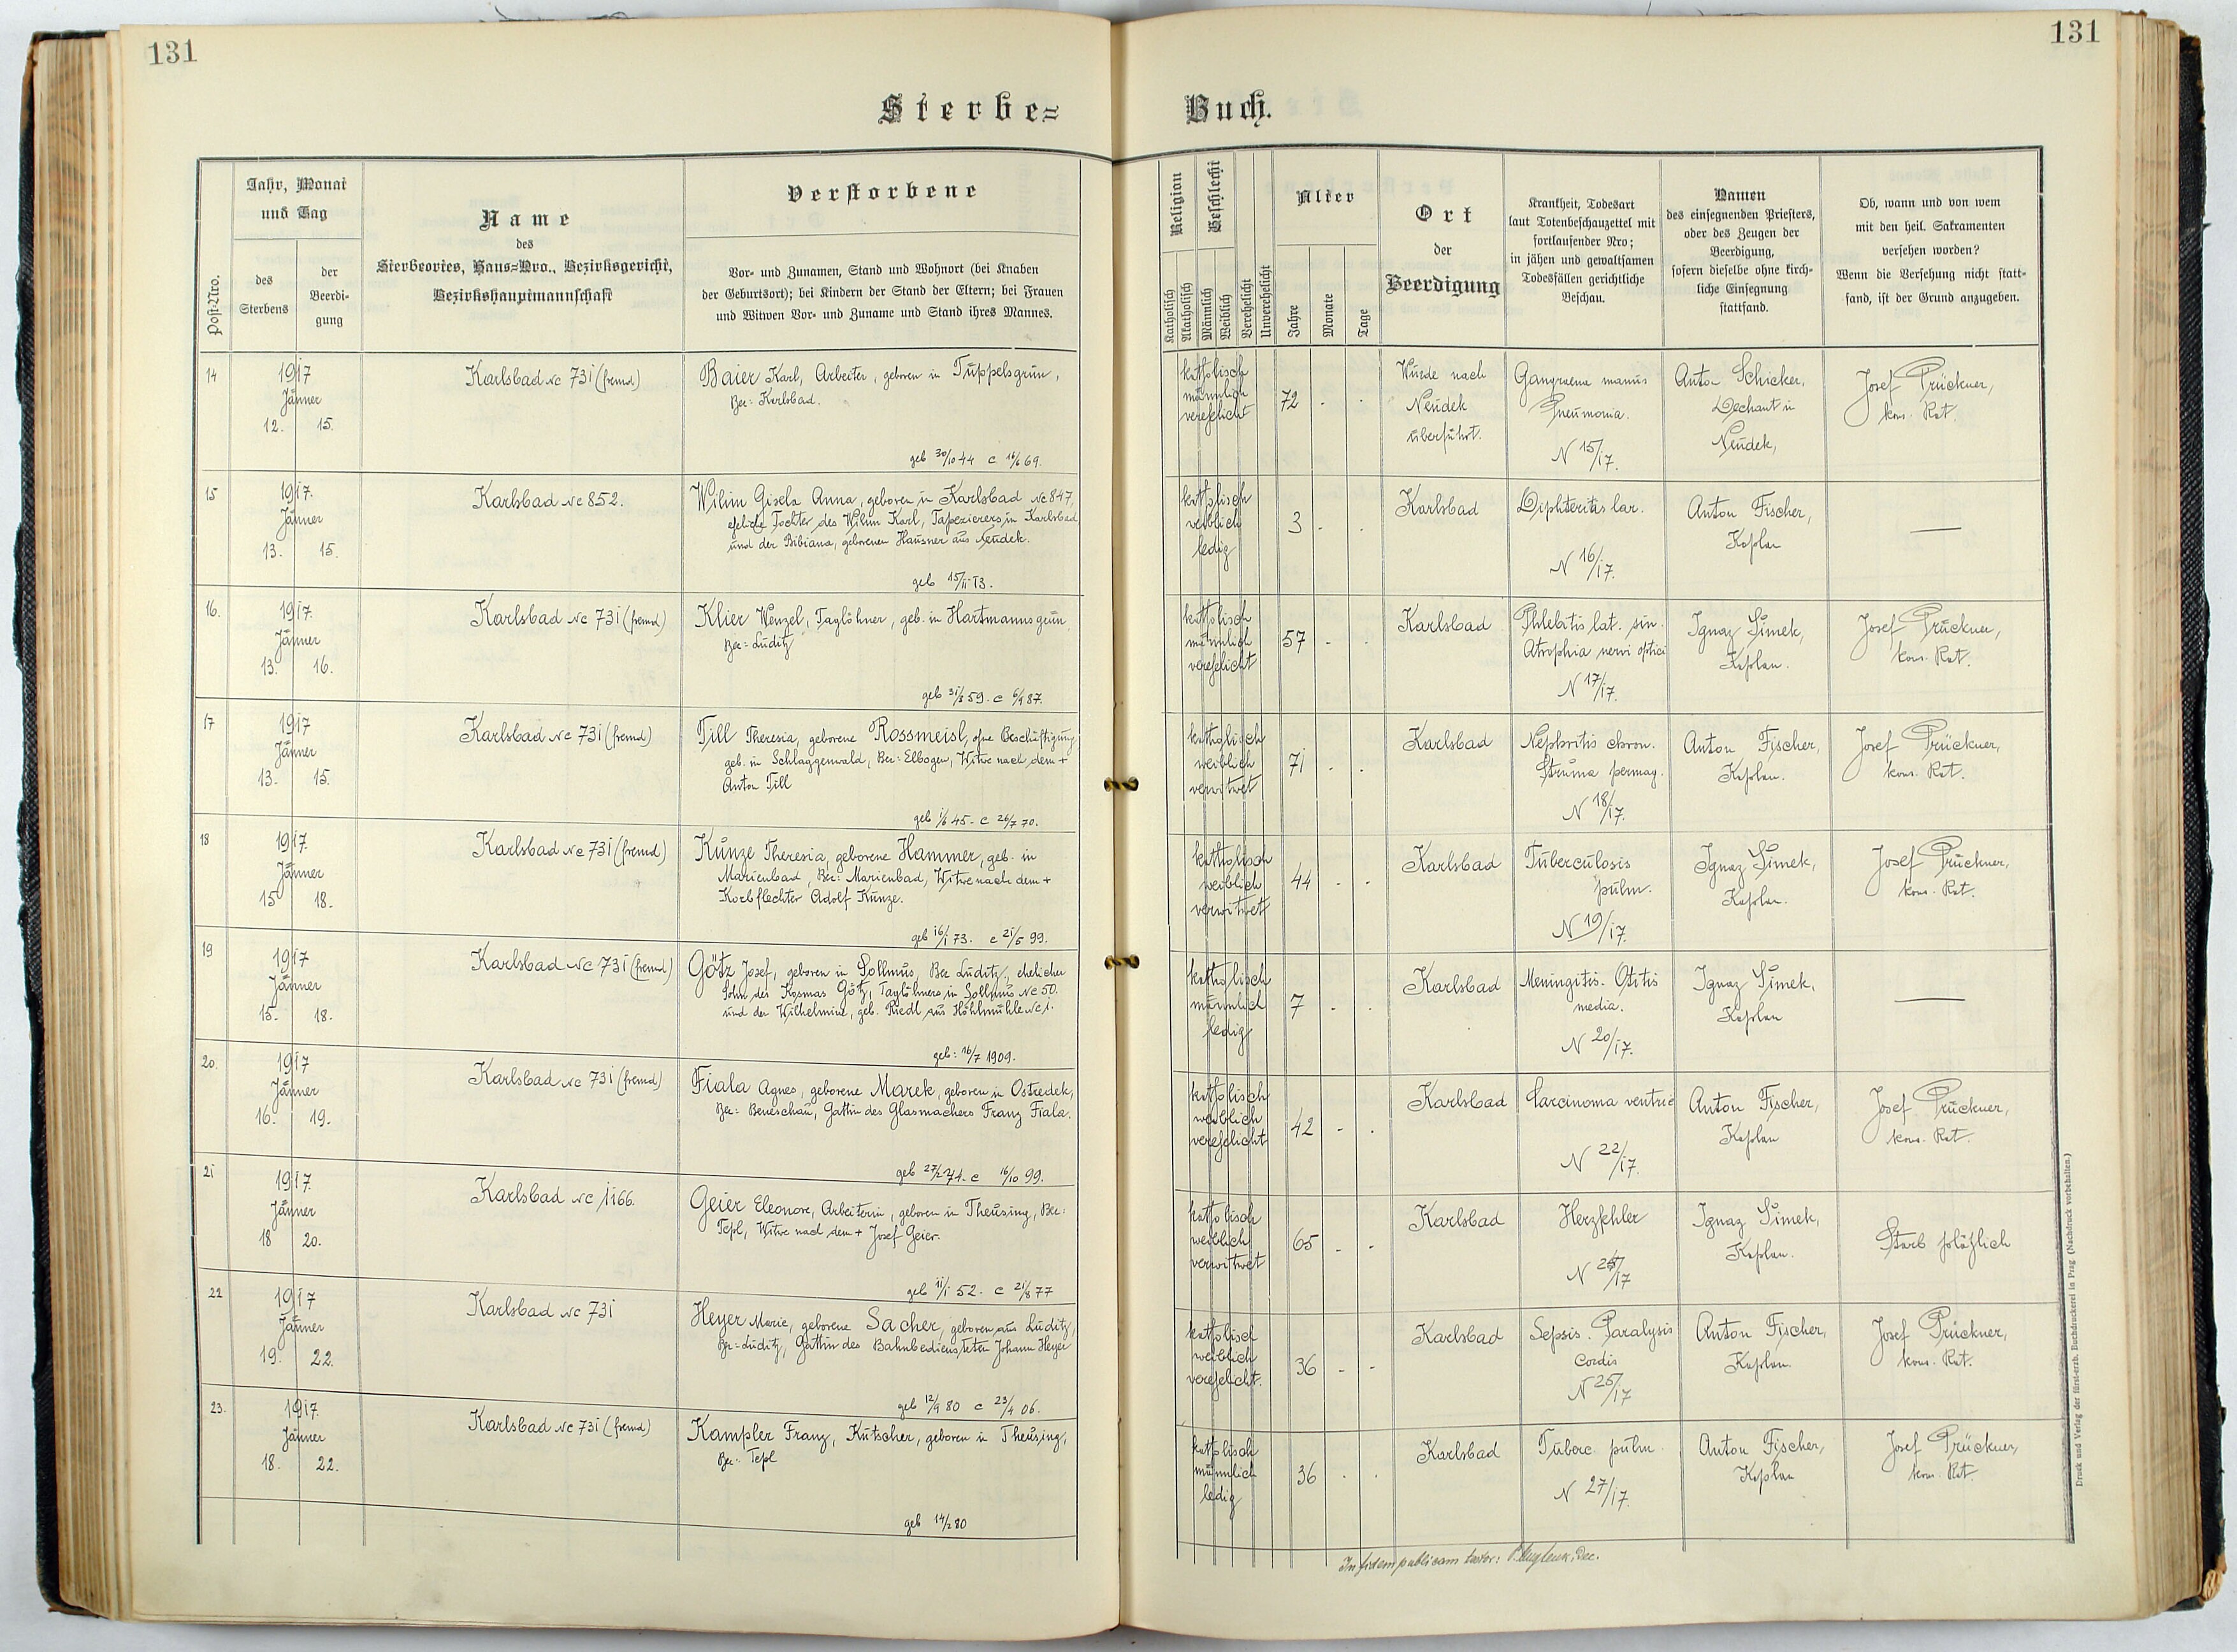 131
131
Sterbe=
Buch.
Post-Nro.
Jahr, Monat
und Tag
des
Sterbens
der
Beerdi-
gung
Name
des
Sterbeortes, Haus=Nro., Bezirksgericht,
Bezirkshauptmannschaft
Verstorbene
Vor- und Zunamen, Stand und Wohnort (bei Knaben
der Geburtsort); bei Kindern der Stand der Eltern; bei Frauen
und Witwen Vor- und Zuname und Stand ihres Mannes.
Religion
Katholisch
Akatholisch
Geschlecht
Männlich
Weiblich
Verehelicht
Unverehelicht
Alter
Jahre
Monate
Tage
Ort
der
Beerdigung
Krankheit, Todesart
laut Totenbeschauzettel mit
fortlaufender Nro;
in jähen und gewaltsamen
Todesfällen gerichtliche
Beschau.
Namen
des einsegnenden Priesters,
oder des Zeugen der
Beerdigung,
sofern dieselbe ohne kirch-
liche Einsegnung
stattfand.
Ob, wann und von wem
mit den heil. Sakramenten
versehen worden?
Wenn die Versehung nicht statt-
fand, ist der Grund anzugeben.
14
1917
Jänner
12. 15.
Karlsbad Nc 731 (fremd)
Baier Karl, Arbeiter, geboren in Tüppelsgrün,
Bez: Karlsbad.
geb 30/10 44 c 16/6 69.
katholisch
männlich
verehelicht
72 - -
Wurde nach
Neudek
überführt.
Gangraena manus
Pneumonia.
N 15/17.
Anton Schicker,
Dechant in
Neudek,
Josef Prückner,
kons. Rat.
15
1917.
Jänner
13. 15.
Karlsbad Nc 852.
Wilim Gisela Anna, geboren in Karlsbad Nc 847,
eheliche Tochter des Wilim Karl, Tapezierers in Karlsbad
und der Bibiana, geborenen Hausner aus Neudek.
geb 15/11 13.
katholisch
weiblich
ledig
3 - -
Karlsbad
Diphteritis lar.
N 16/17.
Anton Fischer,
Kaplan
—
16.
1917.
Jänner
13. 16.
Karlsbad Nc 731 (fremd)
Klier Wenzel, Taglöhner, geb. in Hartmannsgrün
Bez: Luditz
geb 31/8 59. c 6/9 87.
katholisch
männlich
verehelicht
57 - -
Karlsbad
Phlebitis lat. sin.
Atrophia nervi optici
N 17/17.
Ignaz Šimek,
Kaplan.
Josef Prückner,
kons. Rat.
17
1917
Jänner
13. 15.
Karlsbad Nc 731 (fremd)
Till Theresia, geborene Rossmeisl, ohne Beschäftigung,
geb. in Schlaggenwald, Bez: Elbogen, Witwe nach dem +
Anton Till
geb 1/6 45. c 26/7 70.
katholisch
weiblich
verwitwet
71 - -
Karlsbad
Nephritis chron.
Struma permag.
N 18/17.
Anton Fischer,
Kaplan.
Josef Prückner,
kons. Rat.
18
1917.
Jänner
15 18.
Karlsbad Nc 731 (fremd)
Kunze Theresia, geborene Hammer, geb. in
Marienbad, Bez: Marienbad, Witwe nach dem +
Korbflechter Adolf Kunze.
geb 16/1 73. c 21/5 99.
katholisch
weiblich
verwitwet
44 - -
Karlsbad
Tuberculosis
pulm.
N 19/17.
Ignaz Šimek,
Kaplan.
Josef Prückner,
kons. Rat.
19
1917
Jänner
15. 18.
Karlsbad Nc 731 (fremd)
Götz Josef, geboren in Sollmus, Bez Luditz, ehelicher
Sohn des Kosmas Götz, Taglöhners in Sollmus Nc 50.
und der Wilhelmine, geb. Riedl aus Höhlmühle Nc 1.
geb: 16/7 1909.
katholisch
männlich
ledig
7 - -
Karlsbad
Meningitis. Otitis
media.
N 20/17.
Ignaz Šimek,
Kaplan
—
20.
1917
Jänner
16. 19.
Karlsbad Nc 731 (fremd)
Fiala Agnes, geborene Marek, geboren in Ostredek,
Bez: Beneschau, Gattin des Glasmachers Franz Fiala.
geb 27/2 74. c 16/10 99.
katholisch
weiblich
verehelicht
42 - -
Karlsbad
Carcinoma ventric
N 22/17.
Anton Fischer,
Kaplan
Josef Prückner,
kons. Rat.
21
1917.
Jänner
18 20.
Karlsbad Nc 1166.
Geier Eleonore, Arbeiterin, geboren in Theusing, Bez:
Tepl, Witwe nach dem + Josef Geier.
geb 11/1 52. c 21/8 77
katholisch
weiblich
verwitwet
65 - -
Karlsbad
Herzfehler
Ignaz Šimek,
Kaplan.
Starb plötzlich
22
1917
Jänner
19. 22.
Karlsbad Nc 731
Heyer Marie, geborene Sacher, geboren aus Luditz,
Bez: Luditz, Gattin des Bahnbediensteten Johann Heyer
geb 12/9 80 c 23/4 06.
katholisch
weiblich
verehelicht.
36 - -
Karlsbad
Sepsis. Paralysis
cordis
N 25/17
Anton Fischer,
Kaplan.
Josef Prückner,
kons. Rat.
23.
1917.
Jänner
18. 22.
Karlsbad Nc 731 (fremd)
Kampler Franz, Kutscher, geboren in Theusing,
Bez: Tepl
geb 14/2 80
katholisch
männlich
ledig
36 - -
Karlsbad
Tuberc. pulm.
N 27/17.
Anton Fischer,
Kaplan
Josef Prückner,
kons. Rat.
In fidem publicam testor:
Druck und Verlag der fürst-erzb. Buchdruckerei in Prag (Nachdruck vorbehalten.)